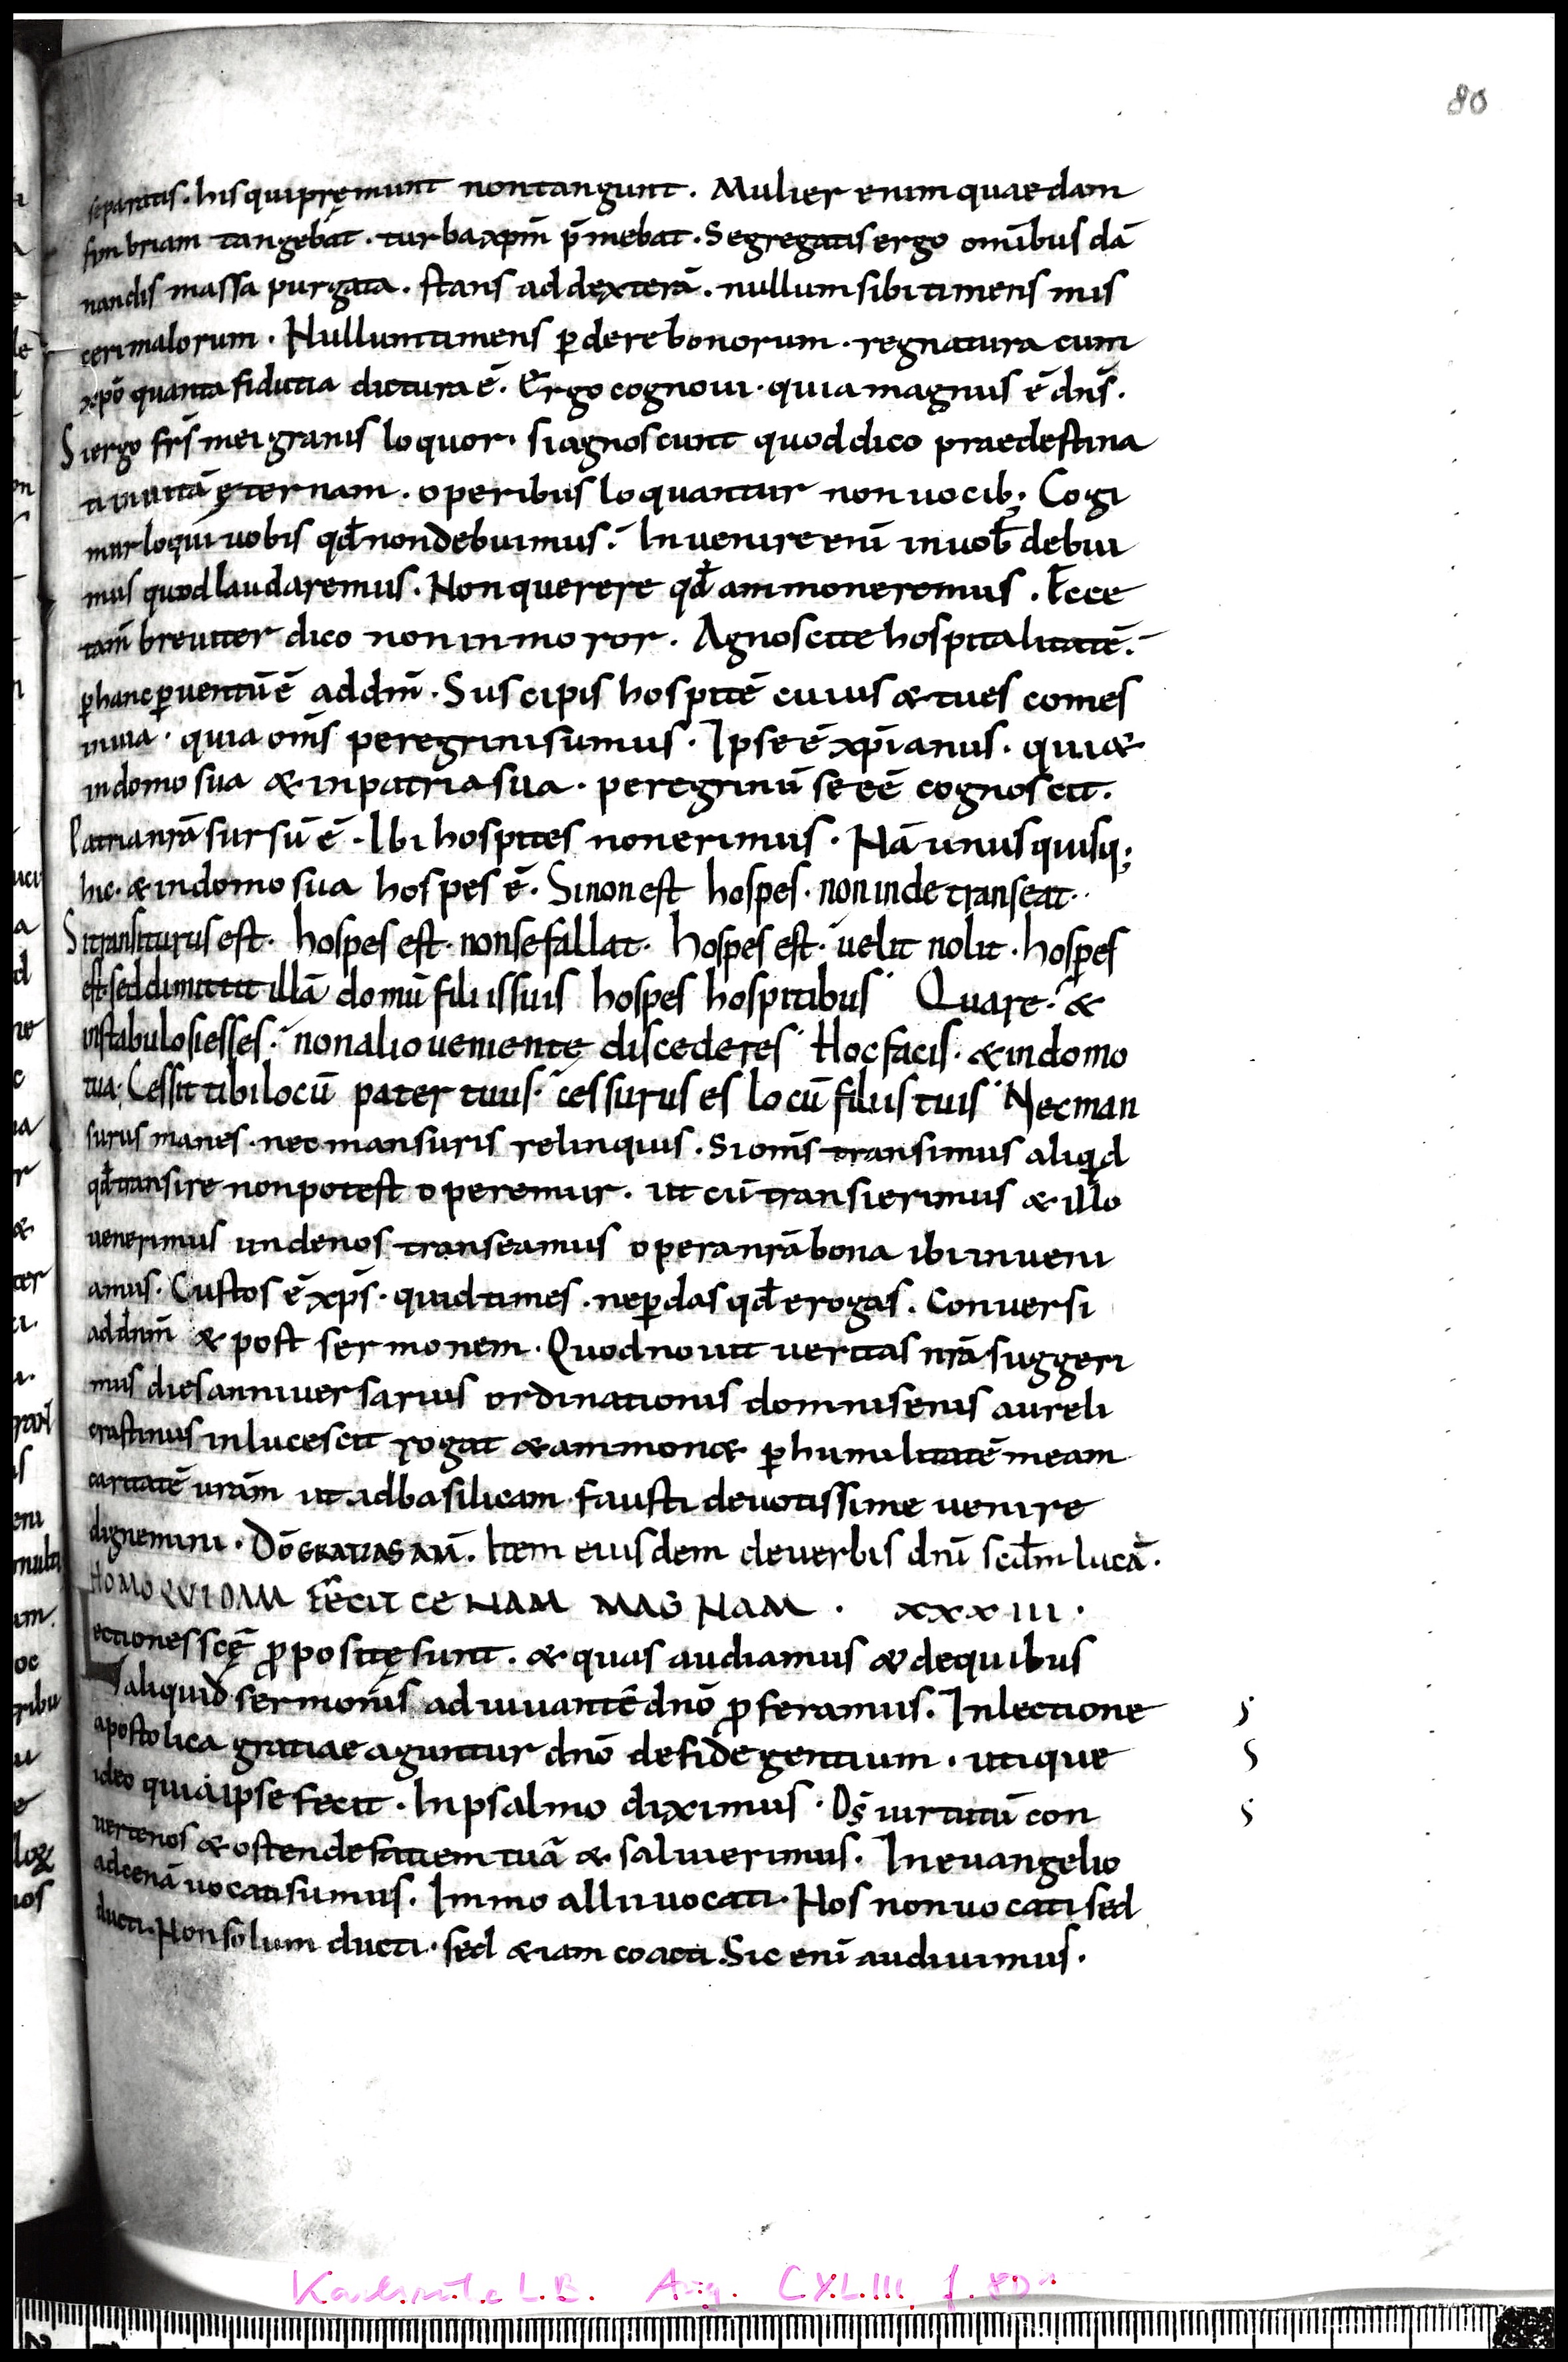 80
separatis. his qui pręmunt non tangunt. Mulier enim quaedam
fimbriam tangebat. turba xp̄m p̄mebat. Segregatis ergo om̄ibus dā
nandis massa purgata. stans ad dexterā. nullum sibi timens mis
ceri malorum. Nullum timens ꝑdere bonorum. regnatura cum
xp̄o quanta fidutia dictura ē. Ergo cognoui. quia magnus ē dn̄s.
Si ergo fr̄s mei granis loquor. si agnoscunt quod dico praedestina
ti in uitā ęternam. operibus loquantur non uocib; Cogi
mur loqui uobis qd̄ non debuimus. Inuenire enī in uob̄ debui
mus quod laudaremus. Non querere qd̄ ammoneremus. Ecce
tam̄ breuiter dico non inmoror. Agnoscite hospitalitatē.
ꝑ hanc ꝑuentū ē ad dn̄m. Suscipis hospitē cuius & tu es comes
in uia. quia om̄s peregrini sumus. Ipse ē xp̄ianus. qui &
in domo sua & in patria sua. peregrinū se eē cognoscit.
Patria nr̄a sursū ē. Ibi hospites non erimus. Nā unusquisq;
hic. & in domo sua hospes ē. Si non est hospes. non inde transeat.
Si transiturus est. hospes est. non se fallat. hospes est. uelit nolit. hospes
est. sed dimittit illā domū filiis suis hospes hospitibus Quare. &
in stabulo si esses. non alio ueniente discederes Hoc facis. & in domo
tua. Cessit tibi locū pater tuus. cessurus es locū filiis tuis Nec man
surus manes. nec mansuris relinquis. Si om̄s transimus aliqid
qd̄ transire non potest operemur. ut cū transierimus & illo
uenerimus unde nos transeamus opera nr̄a bona ibi inueni
amus. Custos ē xp̄s. quid times. ne ꝑdas qd̄ erogas. Conuersi
ad dn̄m & post sermonem. Quod nouit ueritas nr̄a suggeri
mus dies anniuersarius ordinationis domni senis aureli
crastinus inlucescit rogat & ammon& ꝑ humilitatē meam
caritatē urām ut ad basilicam fausti deuotissime uenire
dignemini. Dō GRATIAS AM̄. Item eiusdem de uerbis dn̄i scd̄m lucā.
HOMO QUIDAM FECIT CENAM MAGNAM. XXXIII.
Lectiones scę̄ ꝓpositę sunt. & quas audiamus & de quibus
aliquid sermonis adiuuantē dnō ꝓferamus. In lectione
apostolica gratiae aguntur dnō de fide gentium. utique
ideo quia ipse fecit. In psalmo diximus. Ds̄ uirtutū con
uerte nos & ostende faciem tuā & salui erimus. In euangelio
ad cenā uocati sumus. Immo alii uocati. Nos non uocati sed
ducti. Non solum ducti. sed &iam coacti. Sic enī audiuimus.
Karlsruhe L.B. Aug. CXLIII f. 80r